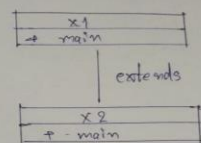 x1
+ main
extends
x2
+ - main